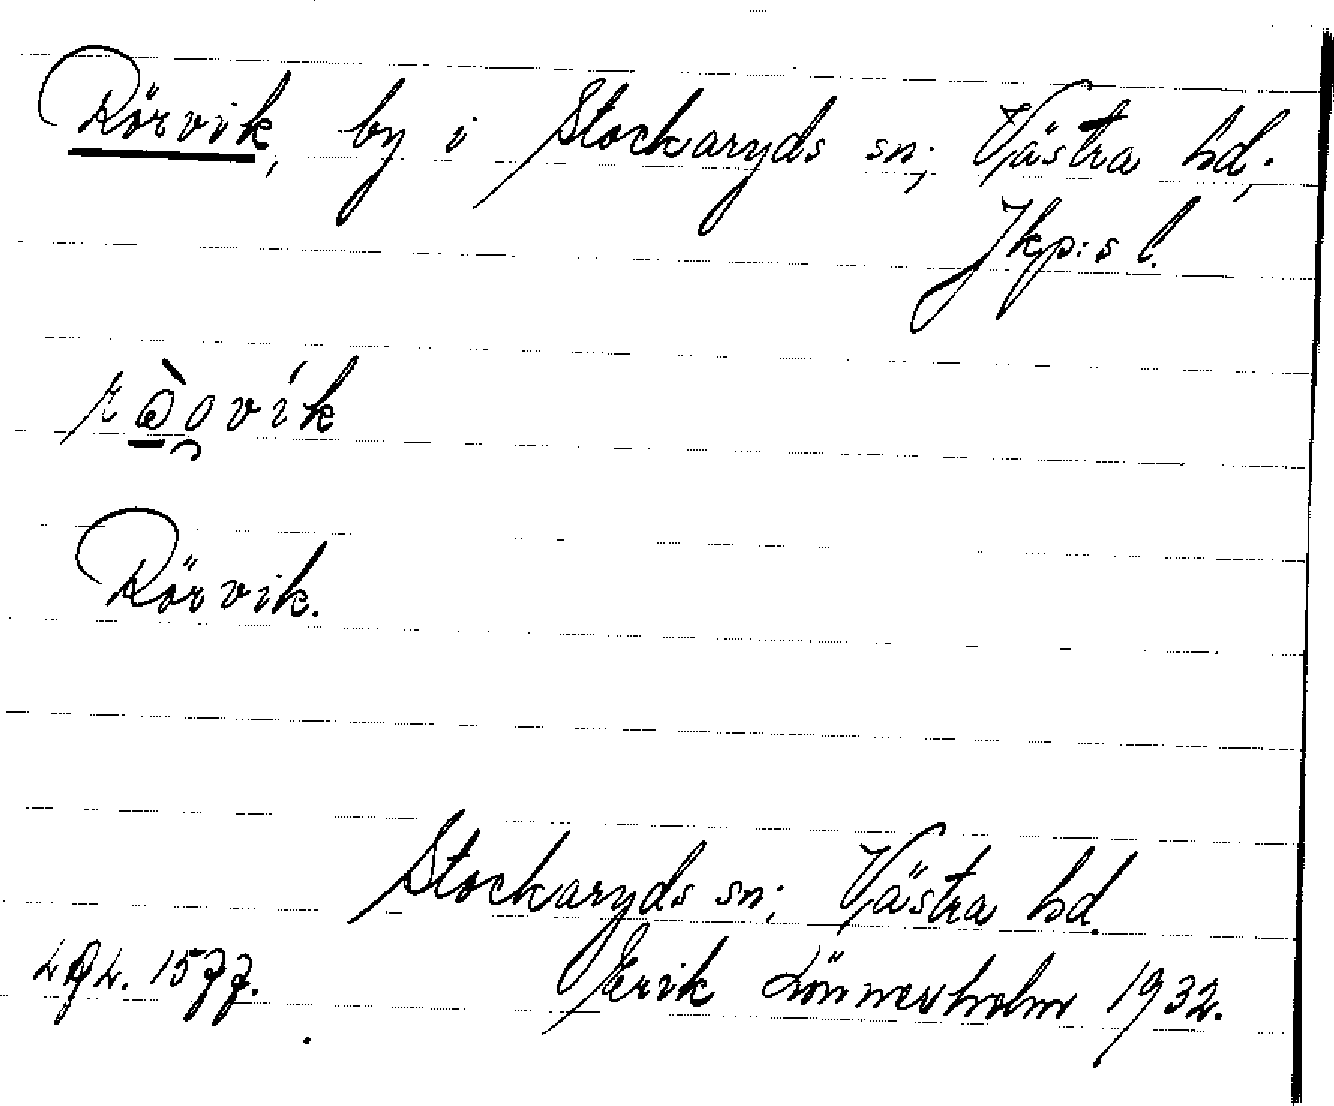 Rörvik, by i Stockaryds sn; Västra hd;
Jkp:s l.
Rörvik.
Stockaryds sn; Västra hd.
Erik Lönnerholm 1932.